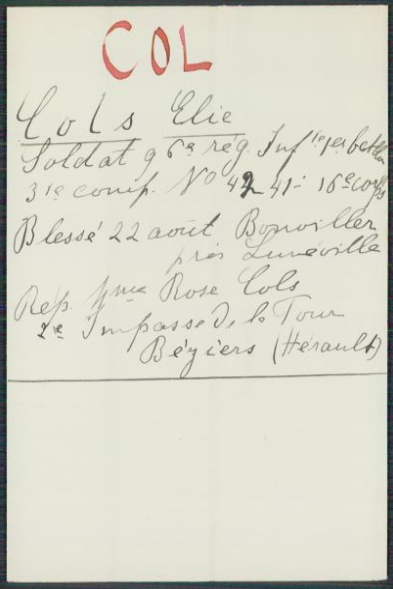 COL
Cols Elie
Soldat 96e rég. Inf.ie 1er batllon
3ie comp. No 4241 - 16e corps
Blessé 22 août Bonviller
près Lunéville
Rép. Mme Rose Cols
2e Impasse de la Tour
Béziers (Hérault)